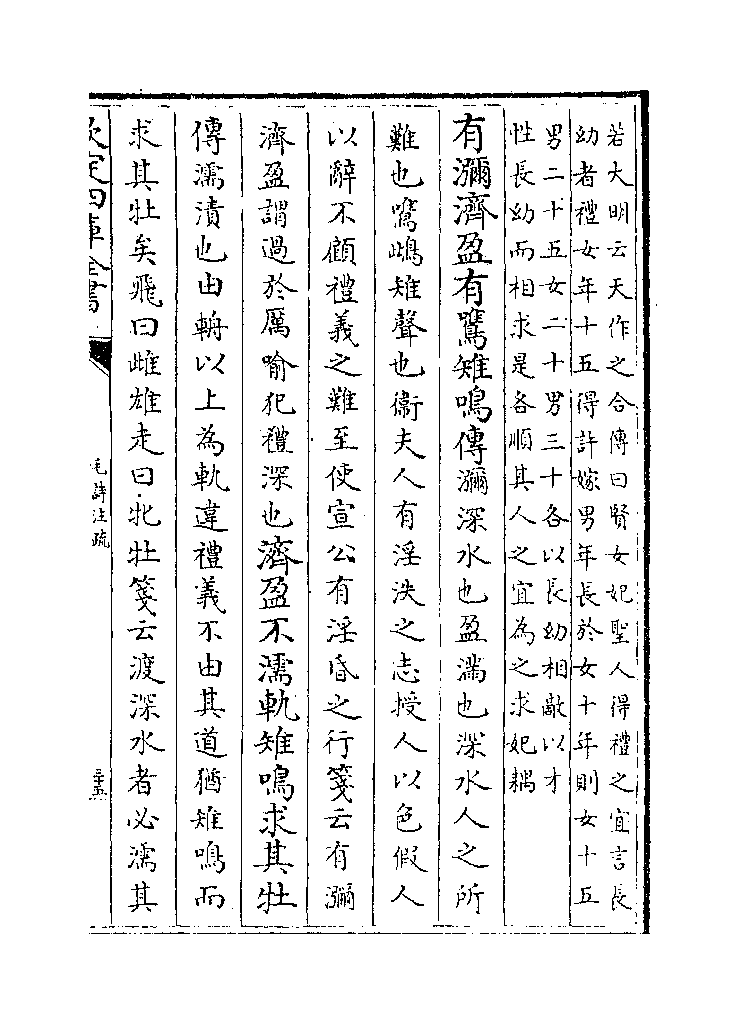 若大明云天作之合傳曰賢女妃聖人得禮之宜言長
幼者禮女年十五得許嫁男年長於女十年則女十五
男二十五女二十男三十各以長幼相敵以才
性長幼而相求是各順其人之宜為之求妃耦
有瀰濟盈有鷕雉鳴傳瀰深水也盈滿也深水人之所
難也鷕鷕雉聲也衞夫人有淫泆之志授人以色假人
以辭不顧禮義之難至使宣公有淫昏之行箋云有瀰
濟盈謂過於厲喻犯禮深也濟盈不濡軌雉鳴求其牡
傳濡漬也由輈以上為軌違禮義不由其道猶雉鳴而
求其牡矣飛曰雌雄走曰牝牡箋云渡深水者必濡其
欽定四庫全書
毛詩注疏